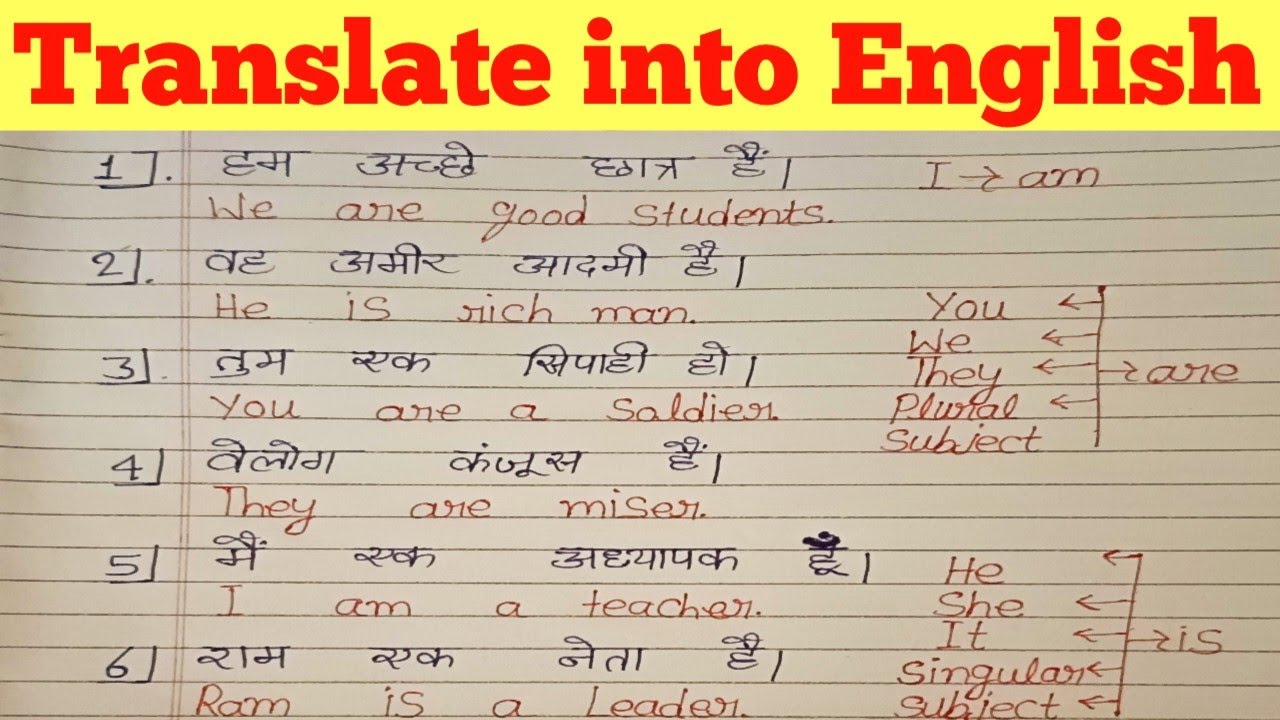 Translate into English
1]. हम अच्छे छात्र हैं।
We are good students.
2]. वह अमीर आदमी है।
He is rich man.
3]. तुम एक सिपाही हो।
You are a Saldier.
4] वेलोग कंजूस हैं।
They are miser.
5] मैं एक अध्यापक हूँ।
I am a teacher.
6] राम एक नेता है।
Ram is a Leader.
I → am
You ←
We ←
They ← → are
Plural ←
Subject
He ←
She ←
It ← → is
Singular ←
Subject ←